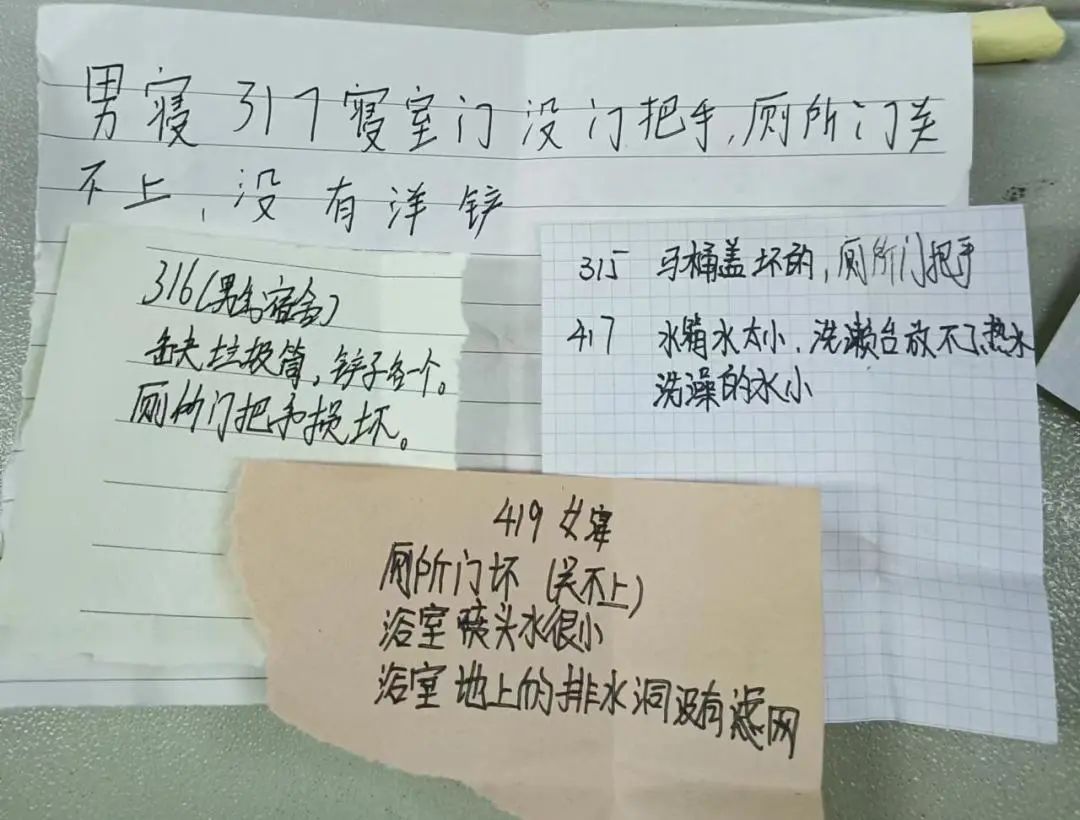 男寝 317 寝室门没门把手,厕所门关
不上,没有洋铲
316(男生宿舍)
缺垃圾筒,铲子各一个。
厕所门把手损坏。
315 马桶盖坏的,厕所门把手
417 水箱水太小、洗漱台放不了热水
洗澡的水小
419 女寝
厕所门坏(关不上)
浴室喷头水很小
浴室地上的排水洞没有滤网